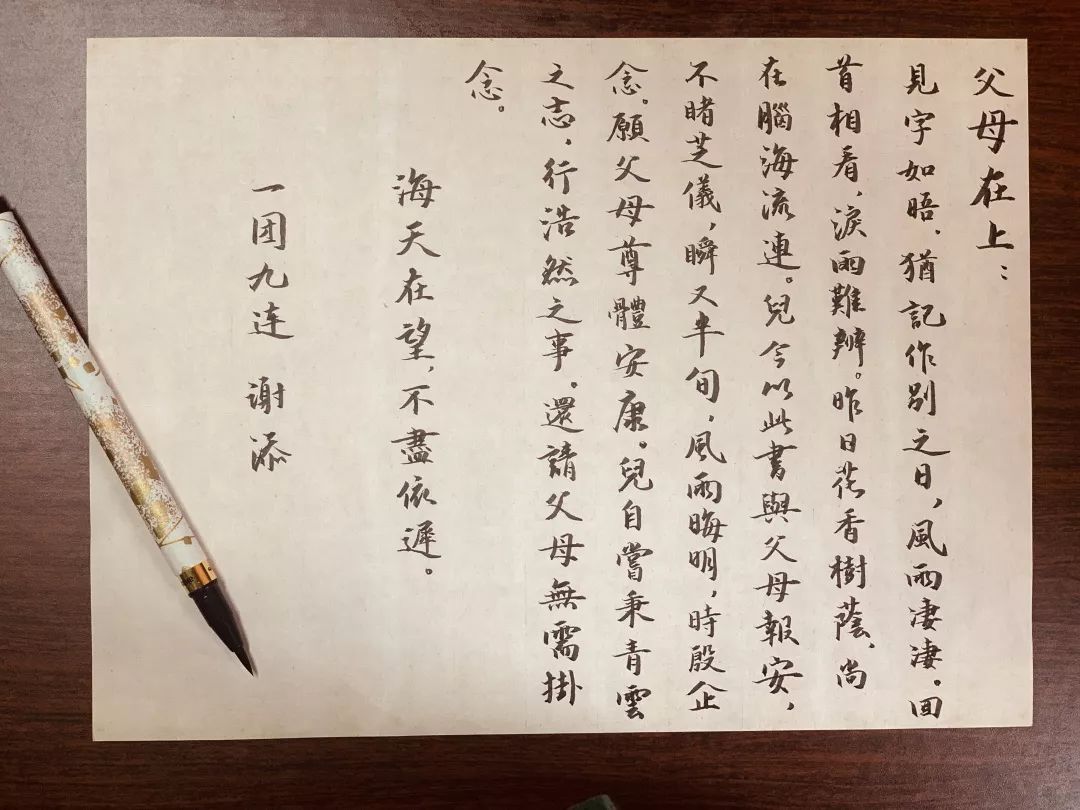 父母在上：
見字如晤，猶記作別之日，風雨淒淒。回
首相看，淚雨難辨。昨日花香樹蔭，尚
在腦海流連。兒今以此書與父母報安，
不睹芝儀，瞬又半旬，風雨晦明，時殷企
念。願父母尊體安康。兒自嘗秉青雲
之志，行浩然之事，還請父母無需掛
念。
海天在望，不盡依遲。
一团九连 谢添